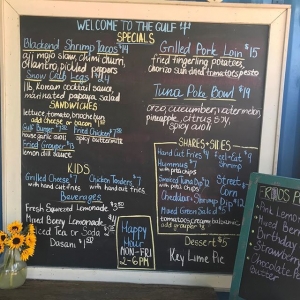 WELCOME TO THE GULF
SPECIALS
Blackend Shrimp Tacos $14
aji mojo slaw, chimi churri,
cilantro, pickled peppers
Snow Crab Legs
1 lb, Korean cocktail sauce,
marinated papaya salad
SANDWICHES
lettuce, tomato, brioche bun
add cheese or bacon
Gulf Burger
Fried Chicken
house garlic aioli
spicy chimichurri
Fried Grouper $13
lemon dill sauce
KIDS
Grilled Cheese $7
Chicken Tenders $7
with hand cut fries
with hand cut fries
Beverages
Fresh Squeezed Lemonade
Mixed Berry Lemonade
Iced Tea or Soda
Dasani
Happy
Hour
MON-FRI
2-6PM
Grilled Pork Loin $15
fried fingerling potatoes,
chorizo, sun dried tomatoes, pesto
Tuna Poke Bowl $14
orzo, cucumber, watermelon,
pineapple, citrus soy,
spicy aioli
SHARES + SIDES
Hand Cut Fries $4
Peel + Eat
Shrimp
Hummus $7
with pita chips
Smoked Tuna Dip $12
with pita chips
Street
Corn
Cheddar + Shrimp Dip $12
Mixed Green Salad
tomatoes, creamy balsamic
add grouper
Dessert $5
Key Lime Pie
Pink Lemon
Mixed
Birthday
Strawberry
Chocolate
Butter